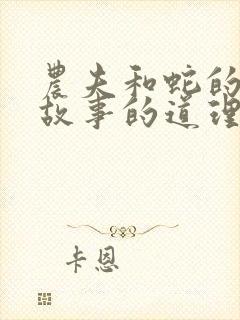 農夫和蛇的
故事的道理
卡恩